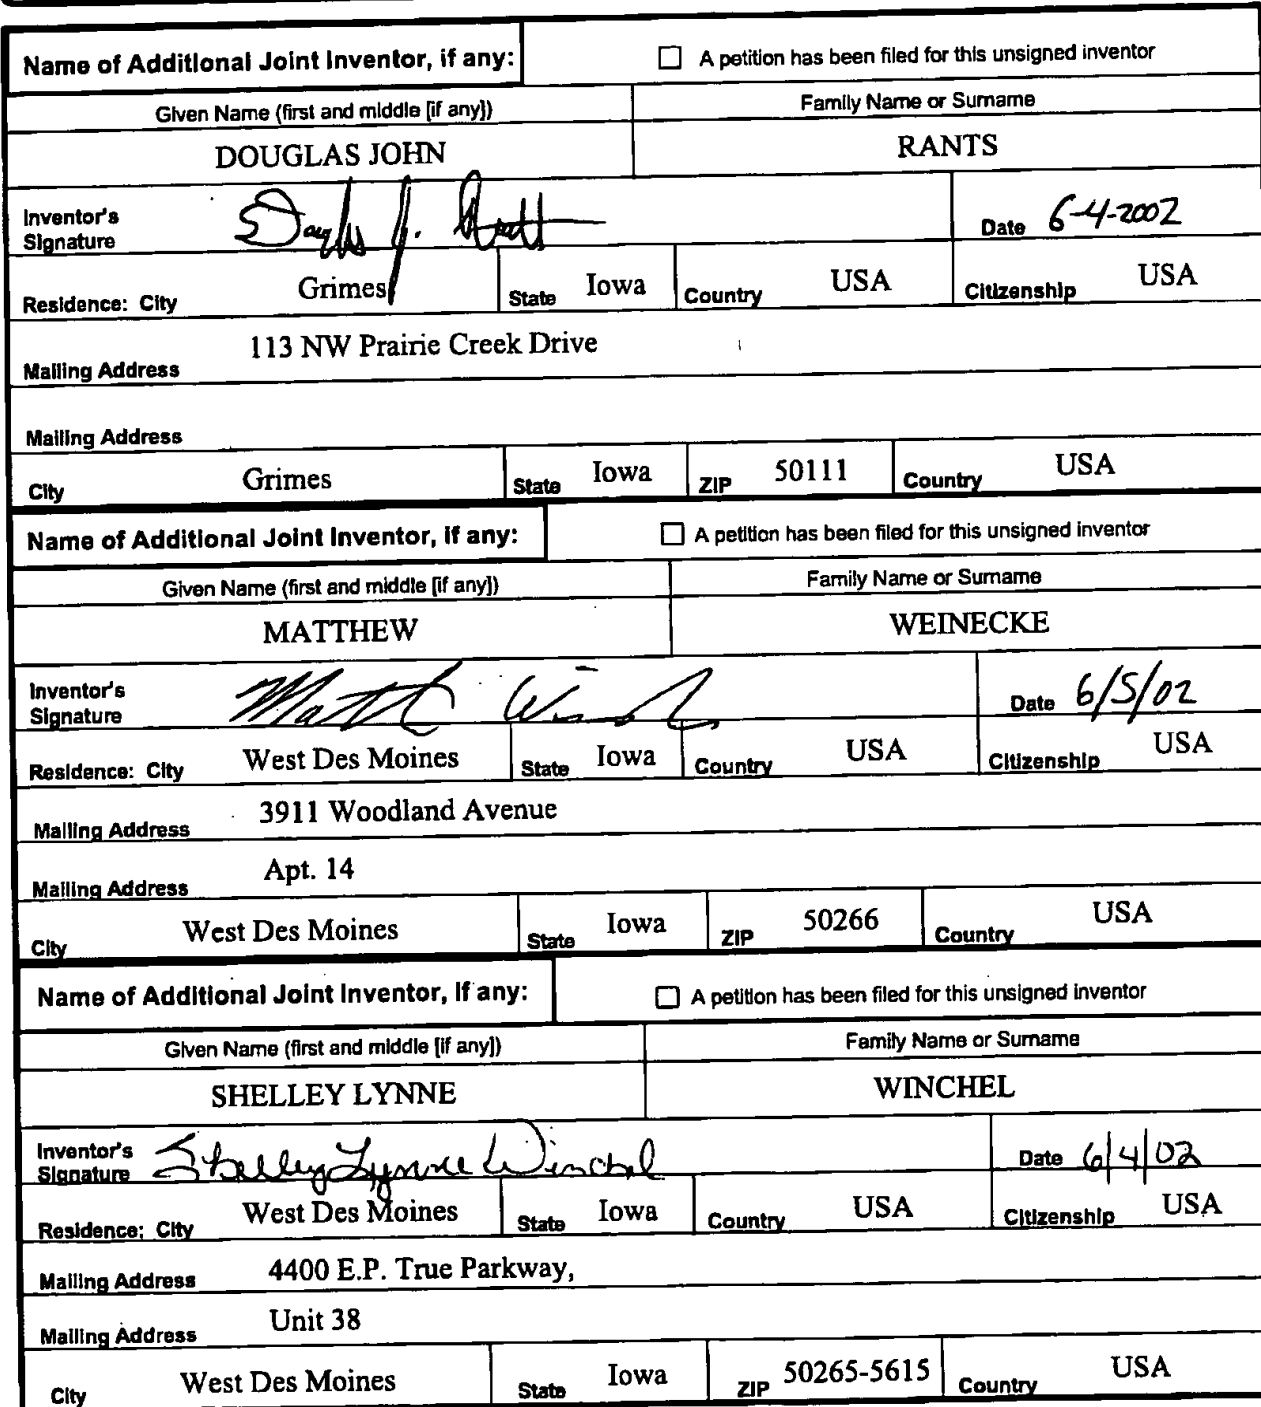 Name of Additional Joint Inventor, if any: ☐ A petition has been filed for this unsigned inventor
Given Name (first and middle [if any]) Family Name or Surname
DOUGLAS JOHN RANTS
Inventor's Signature Douglas J. Rants Date 6-4-2002
Residence: City Grimes State Iowa Country USA Citizenship USA
Mailing Address 113 NW Prairie Creek Drive
Mailing Address
City Grimes State Iowa ZIP 50111 Country USA
Name of Additional Joint Inventor, if any: ☐ A petition has been filed for this unsigned inventor
Given Name (first and middle [if any]) Family Name or Surname
MATTHEW WEINECKE
Inventor's Signature Matth Date 6/5/02
Residence: City West Des Moines State Iowa Country USA Citizenship USA
Mailing Address 3911 Woodland Avenue
Mailing Address Apt. 14
City West Des Moines State Iowa ZIP 50266 Country USA
Name of Additional Joint Inventor, if any: ☐ A petition has been filed for this unsigned inventor
Given Name (first and middle [if any]) Family Name or Surname
SHELLEY LYNNE WINCHEL
Inventor's Signature Shelley Lynne Winchel Date 6/4/02
Residence: City West Des Moines State Iowa Country USA Citizenship USA
Mailing Address 4400 E.P. True Parkway,
Mailing Address Unit 38
City West Des Moines State Iowa ZIP 50265-5615 Country USA